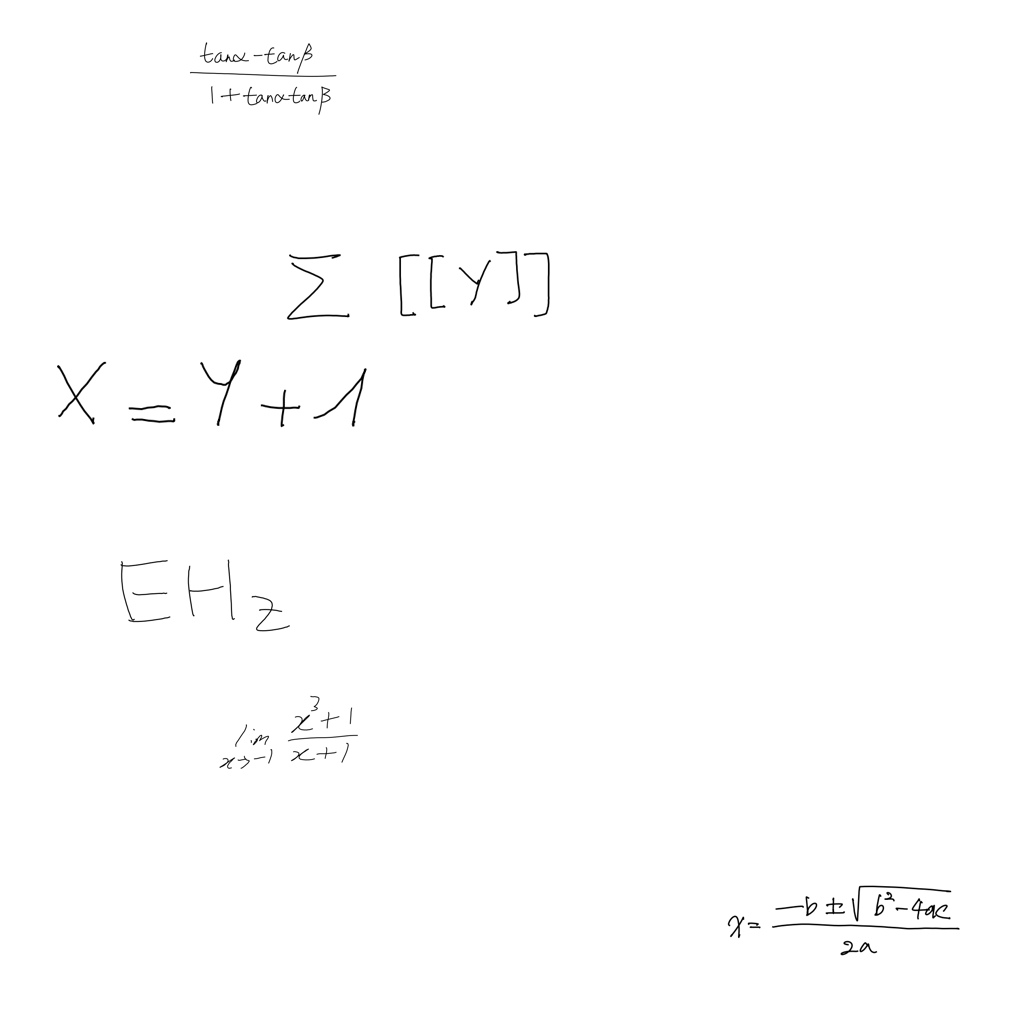 \frac{\tan\alpha-\tan\beta}{1+\tan\alpha\tan\beta}
\sum [[Y]]
X=Y+1
EH_z
\lim_{x\to-1}\frac{x^3+1}{x+1}
x=\frac{-b\pm\sqrt{b^2-4ac}}{2a}